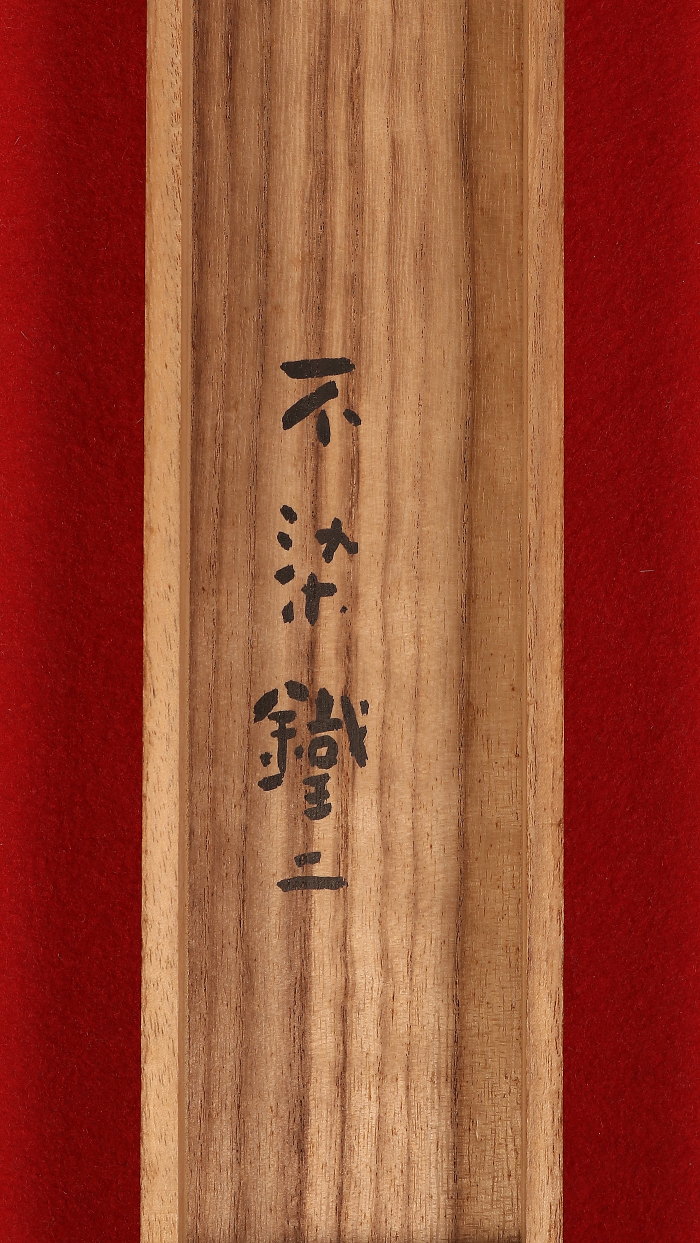 不染鐵二